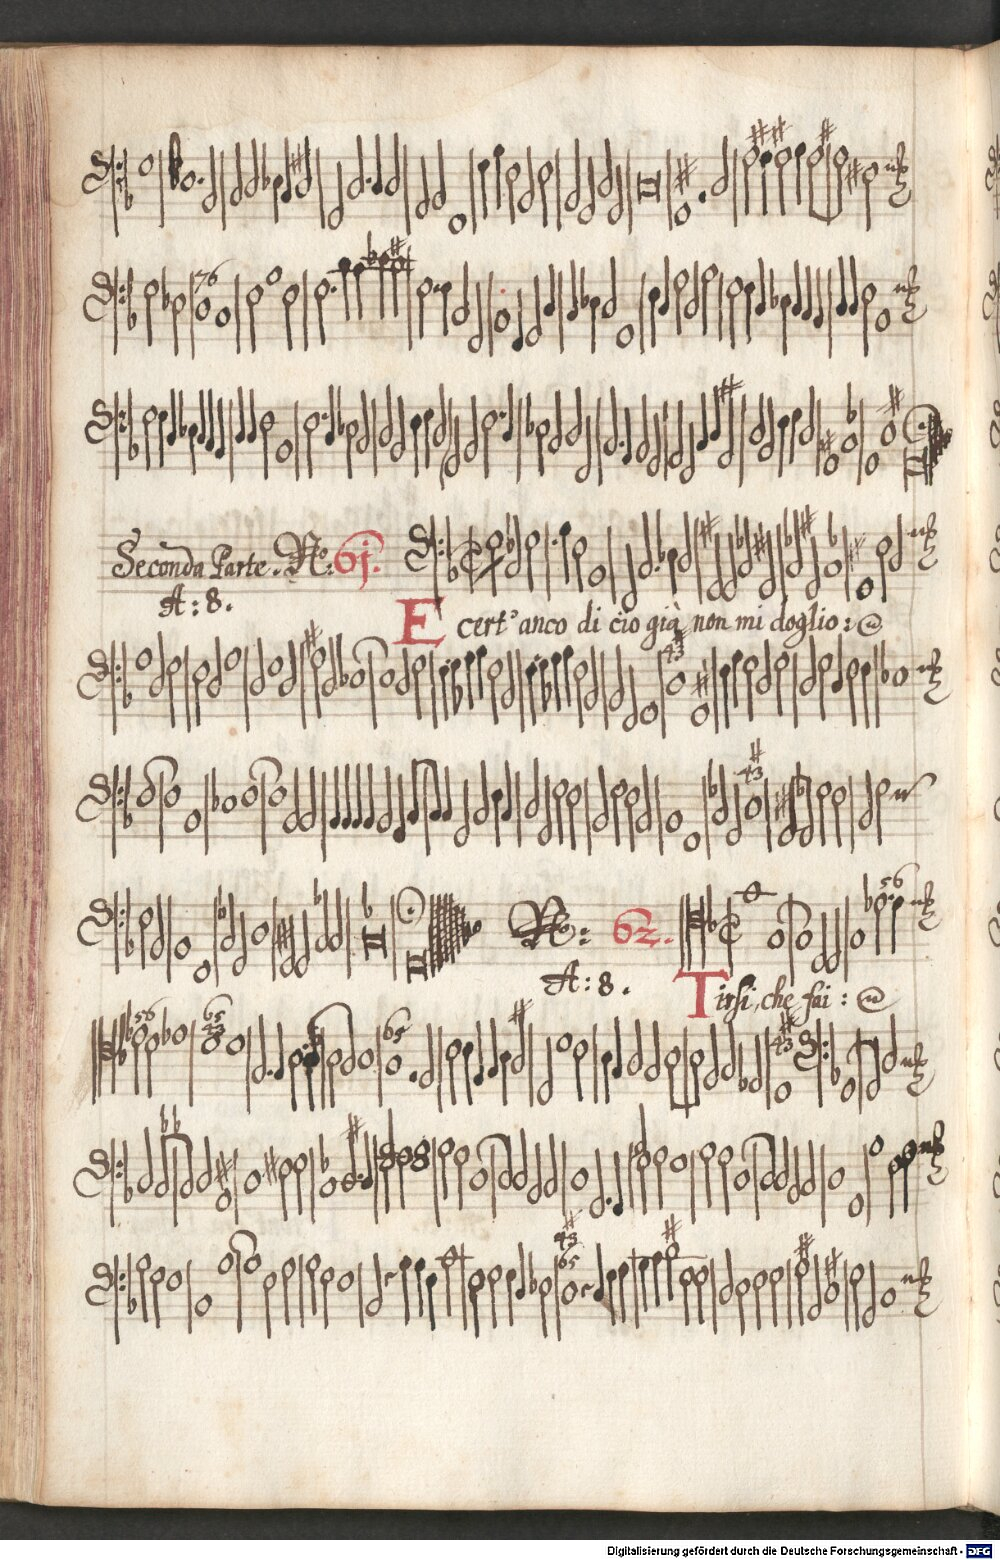 Seconda Parte. No: 61.
A: 8.
E cert' anco di cio già non mi doglio:
No: 62.
A: 8.
Tirsi, che fai:
Digitalisierung gefördert durch die Deutsche Forschungsgemeinschaft - DFG